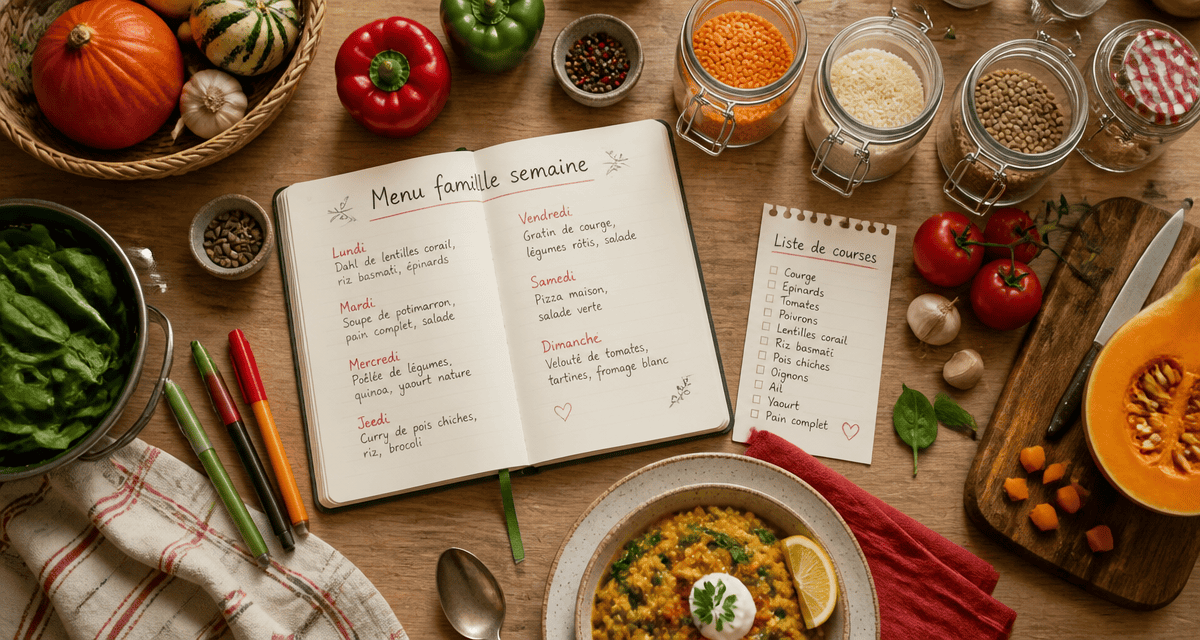 Menu famille semaine
Lundi
Dahl de lentilles corail,
riz basmati, épinards
Mardi
Soupe de potimarron,
pain complet, salade
Mercredi
Poêlée de légumes,
quinoa, yaourt nature
Jeedi
Curry de pois chiches,
riz, brocoli
Vendredi
Gratin de courge,
légumes rôtis, salade
Samedi
Pizza maison,
salade verte
Dimanche
Velouté de tomates,
tartines, fromage blanc
Liste de courses
Courge
Epinards
Tomates
Poivrons
Lentilles corail
Riz basmati
Pois chiches
Oignons
Ail
Yaourt
Pain complet